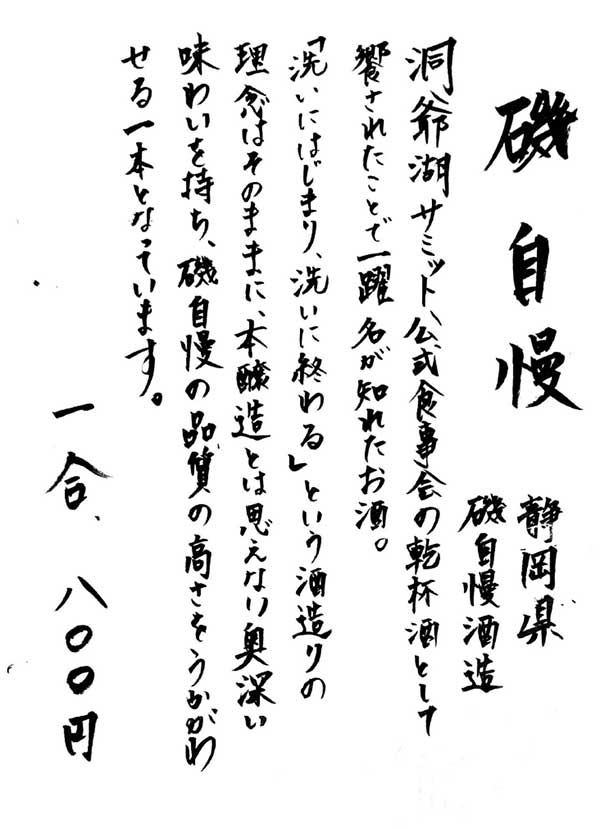 磯自慢
静岡県
磯自慢酒造
洞爺湖サミット公式食事会の乾杯酒として
饗されたことで一躍名が知れたお酒。
「洗いにはじまり、洗いに終わる」という酒造りの
理念はそのままに、本醸造とは思えない奥深い
味わいを持ち、磯自慢の品質の高さをうかがわ
せる一本となっています。
一合、八〇〇円